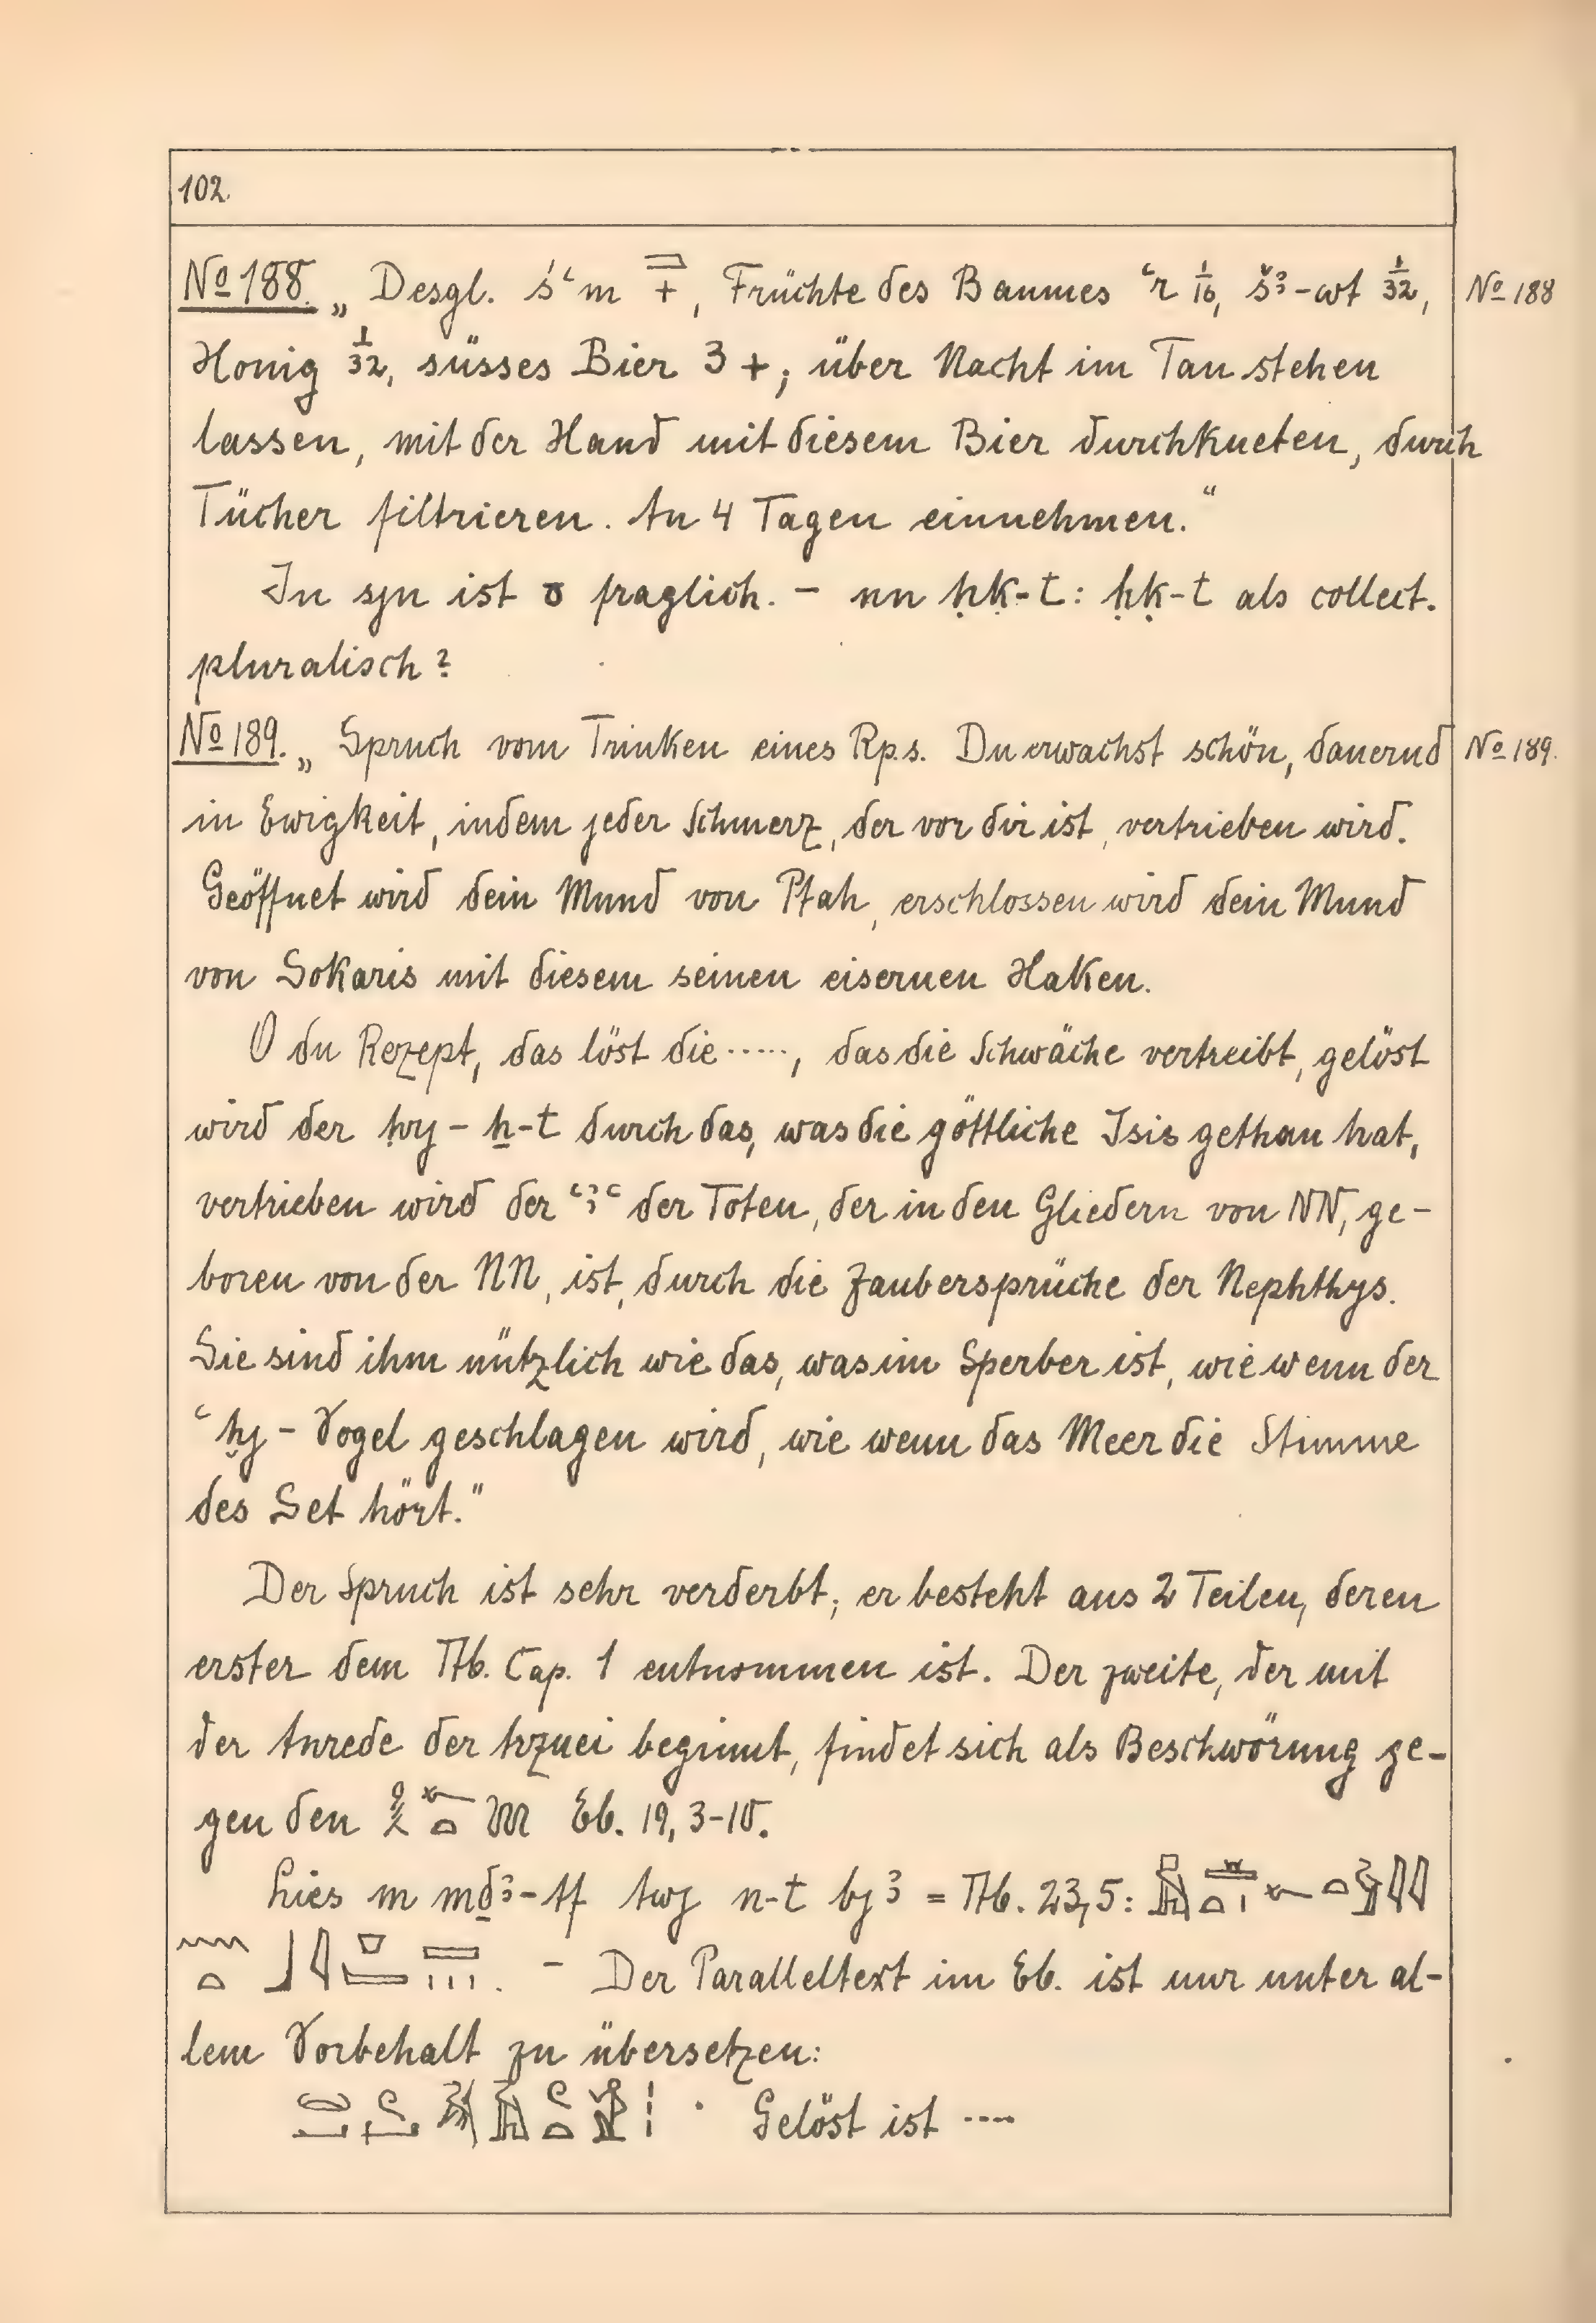 102.
No 188. „Desgl. śꜥm +, Früchte des Baumes ꜥr 1/16, šꜣ-wt 1/32, No 188
Honig 1/32, süsses Bier 3 +; über Nacht im Tau stehen
lassen, mit der Hand mit diesem Bier durchkneten, durch
Tücher filtrieren. An 4 Tagen einnehmen.“
In sjn ist fraglich. – nn ḥḳ-t: ḥḳ-t als collect.
pluralisch?
No 189. „Spruch vom Trinken eines Rp.s. Du erwachst schön, dauernd No 189.
in Ewigkeit, indem jeder Schmerz, der vor dir ist, vertrieben wird.
Geöffnet wird dein Mund von Ptah, erschlossen wird dein Mund
von Sokaris mit diesem seinen eisernen Haken.
O du Rezept, das löst die ....., das die Schwäche vertreibt, gelöst
wird der ḥwy-ẖ-t durch das, was die göttliche Isis gethan hat,
vertrieben wird der ꜥꜣꜥ der Toten, der in den Gliedern von NN, ge-
boren von der NN, ist, durch die Zaubersprüche der Nephthys.
Sie sind ihm nützlich wie das, was im Sperber ist, wie wenn der
ꜥḥj-Vogel geschlagen wird, wie wenn das Meer die Stimme
des Set hört.“
Der Spruch ist sehr verderbt; er besteht aus 2 Teilen, deren
erster dem Ttb. Cap. 1 entnommen ist. Der zweite, der mit
der Anrede der Arznei beginnt, findet sich als Beschwörung ge-
gen den Eb. 19, 3-10.
Lies m mḏꜣ-tf twj n-t bjꜣ = Ttb. 23,5:
. – Der Paralleltext im Eb. ist nur unter al-
lem Vorbehalt zu übersetzen:
Gelöst ist ....